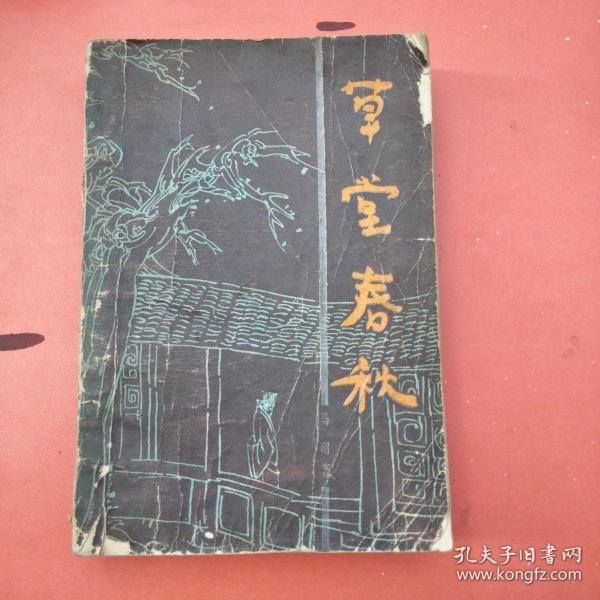 草堂春秋
马
孔夫子旧書网
www.kongfz.com